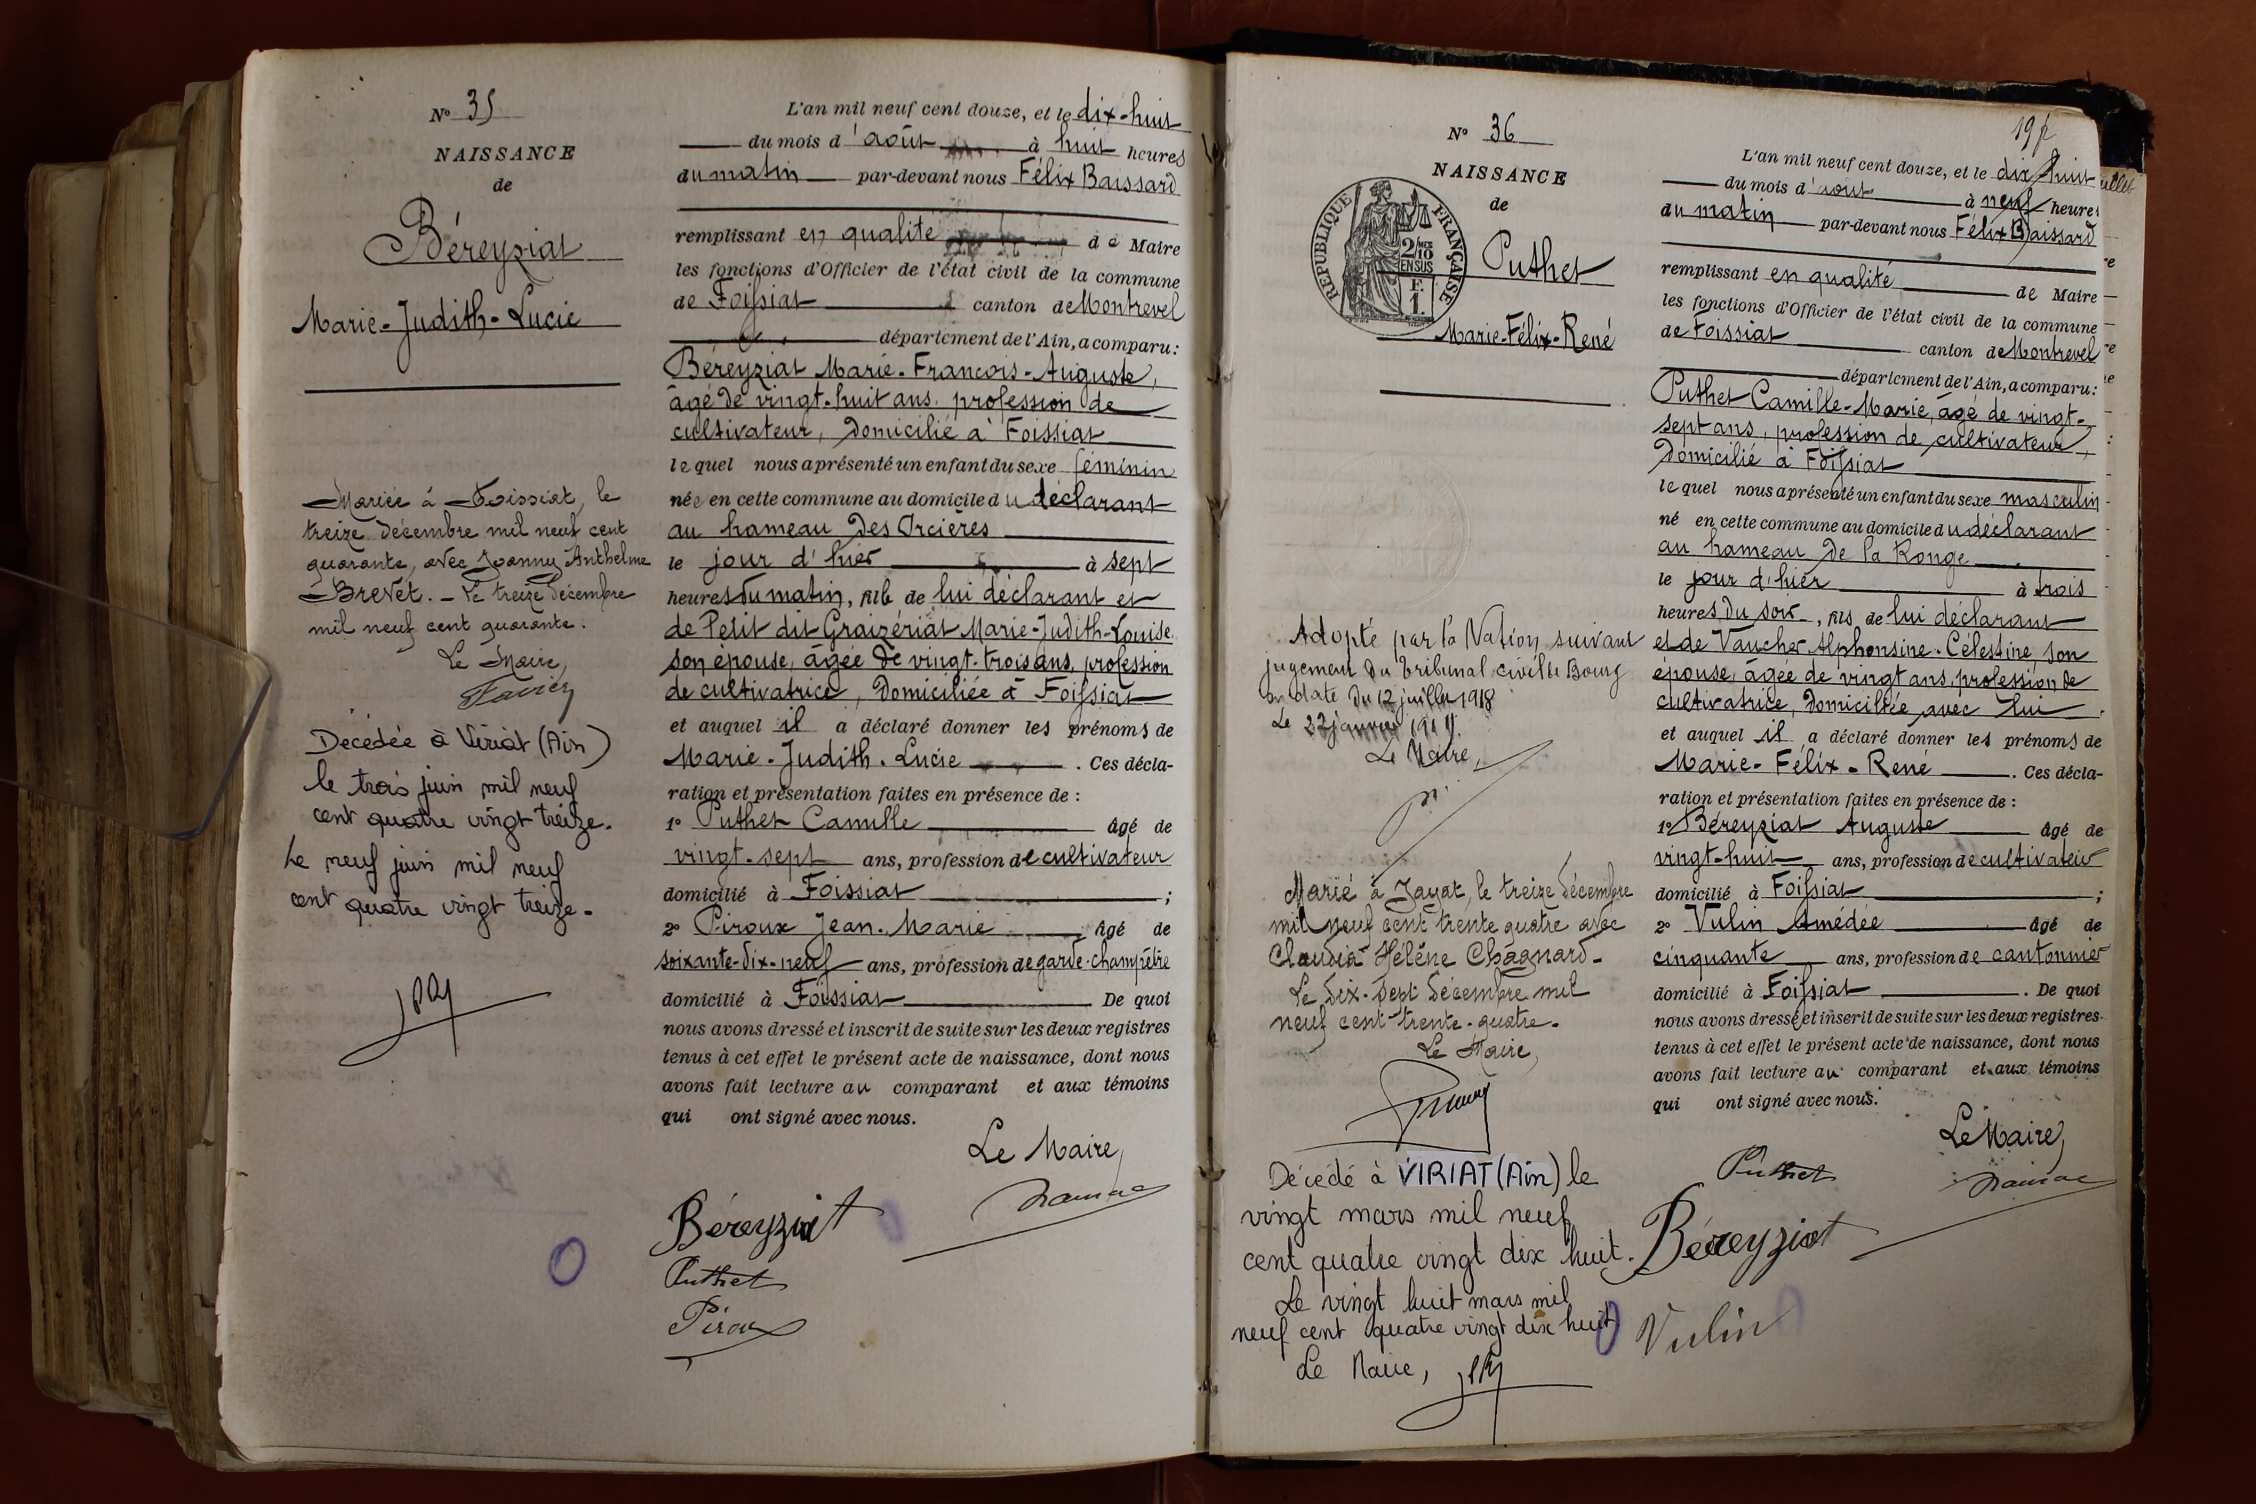 N° 35
NAISSANCE
de
Béreyziat
Marie-Judith-Lucie
Mariée à Foissiat, le
treize décembre mil neuf cent
quarante, avec Joanny Anthelme
Brevet. - Le treize décembre
mil neuf cent quarante.
Le Maire,
Décédée à Viriat (Ain)
le trois juin mil neuf
cent quatre vingt treize.
Le neuf juin mil neuf
cent quatre vingt treize.
L'an mil neuf cent douze, et le dix-huit
du mois d'août à huit heures
du matin par-devant nous Félix Baissard
remplissant en qualité de Maire
les fonctions d'Officier de l'état civil de la commune
de Foissiat canton de Montrevel
département de l'Ain, a comparu :
Béreyziat Marie-François-Auguste,
âgé de vingt-huit ans, profession de
cultivateur, domicilié à Foissiat
lequel nous a présenté un enfant du sexe féminin
née en cette commune au domicile du déclarant
au hameau des Orcières
le jour d'hier à sept
heures du matin, fille de lui déclarant et
de Petit dit Graizériat Marie-Judith-Louise
son épouse, âgée de vingt-trois ans, profession
de cultivatrice, domiciliée à Foissiat
et auquel il a déclaré donner les prénoms de
Marie-Judith-Lucie. Ces décla-
ration et présentation faites en présence de :
1° Puthet Camille âgé de
vingt-sept ans, profession de cultivateur
domicilié à Foissiat ;
2° Piroux Jean-Marie âgé de
soixante-dix-neuf ans, profession de garde-champêtre
domicilié à Foissiat De quoi
nous avons dressé et inscrit de suite sur les deux registres
tenus à cet effet le présent acte de naissance, dont nous
avons fait lecture au comparant et aux témoins
qui ont signé avec nous.
Le Maire,
Béreyziat
Puthet
Piroux
N° 36
NAISSANCE
de
RÉPUBLIQUE FRANÇAISE
2/10
EN SUS
F.
1.
Puthet
Marie-Félix-René
Adopté par la Nation suivant
jugement du tribunal civil de Bourg
en date du 12 juillet 1918
Le 22 janvier
Le Maire,
Marié à Jayat, le treize décembre
mil neuf cent trente quatre avec
Claudia Hélène Chagnard.
Le dix-sept décembre mil
neuf cent trente-quatre.
Le Maire,
Décédé à VIRIAT (Ain) le
vingt mars mil neuf
cent quatre vingt dix huit.
Le vingt huit mars mil
neuf cent quatre vingt dix huit
Le Maire,
L'an mil neuf cent douze, et le dix huit
du mois d'aout à neuf heures
du matin par-devant nous Félix Baissard
remplissant en qualité de Maire
les fonctions d'Officier de l'état civil de la commune
de Foissiat canton de Montrevel
département de l'Ain, a comparu :
Puthet Camille-Marie, âgé de vingt-
sept ans, profession de cultivateur,
domicilié à Foissiat
lequel nous a présenté un enfant du sexe masculin
né en cette commune au domicile du déclarant
au hameau de la Ronge
le jour d'hier à trois
heures du soir, fils de lui déclarant
et de Vaucher Alphonsine-Célestine, son
épouse, âgée de vingt ans, profession de
cultivatrice, domiciliée avec lui.
et auquel il a déclaré donner les prénoms de
Marie-Félix-René. Ces décla-
ration et présentation faites en présence de :
1° Béreyziat Auguste âgé de
vingt-huit ans, profession de cultivateur
domicilié à Foissiat ;
2° Vulin Amédée âgé de
cinquante ans, profession de cantonnier
domicilié à Foissiat. De quoi
nous avons dressé et inscrit de suite sur les deux registres
tenus à cet effet le présent acte de naissance, dont nous
avons fait lecture au comparant et aux témoins
qui ont signé avec nous.
Le Maire,
Puthet
Béreyziat
Vulin